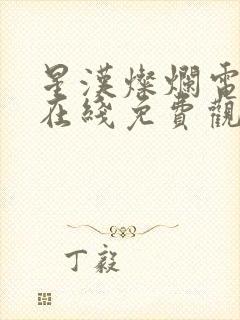 星漢燦爛電
在綫免費觀
丁毅